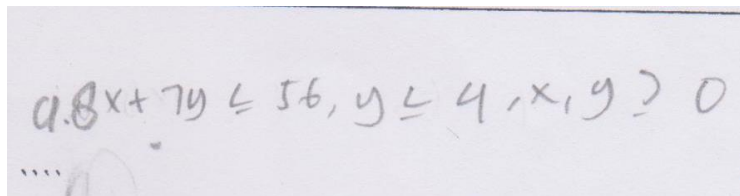 a. 8x + 7y ≤ 56, y ≤ 4, x, y ≥ 0
....